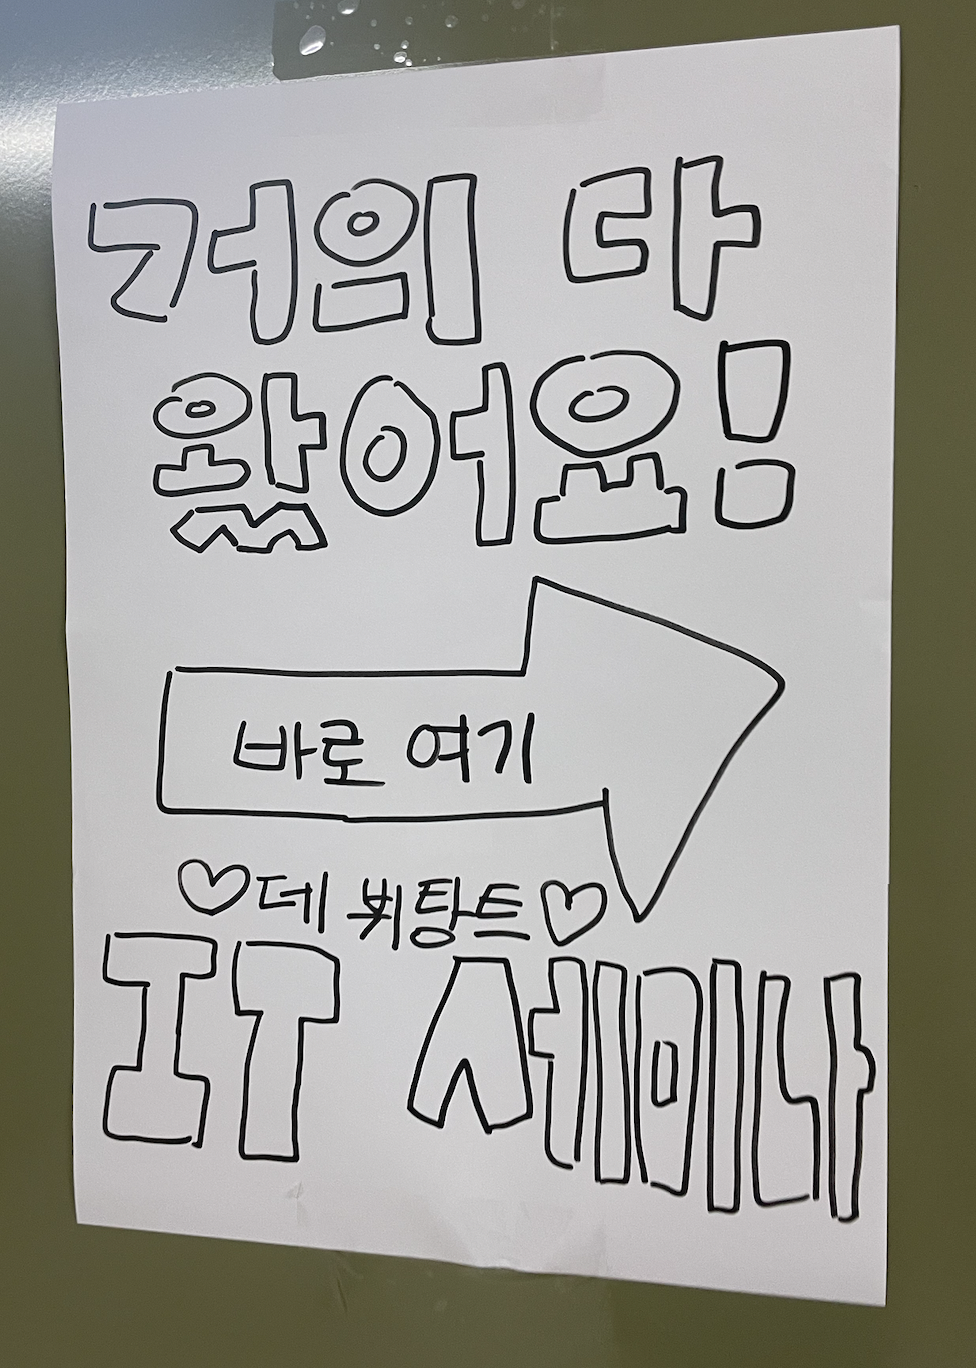 거의 다
왔어요!
바로 여기
♡데 뷔탕트♡
IT 세미나